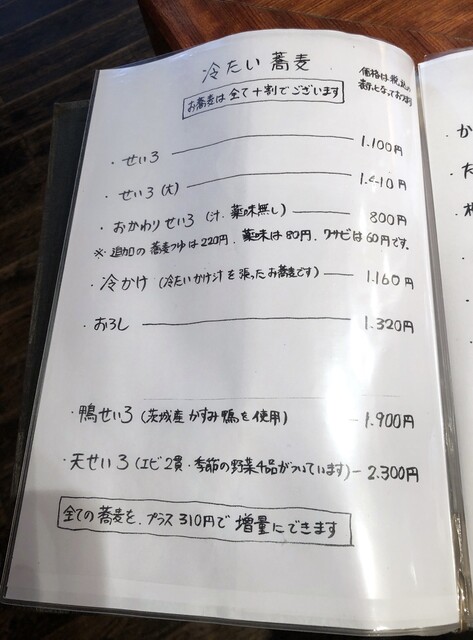 冷たい蕎麦
価格は税込の
表示となっております
お蕎麦は全て十割でございます
・せいろ 1.100円
・せいろ(大) 1.410円
・おかわりせいろ(汁、薬味無し) 800円
※追加の蕎麦つゆは220円、薬味は80円、ワサビは60円です。
・冷かけ(冷たいかけ汁を張ったお蕎麦です) 1.160円
・おろし 1.320円
・鴨せいろ(茨城産かすみ鴨を使用) 1.900円
・天せいろ(エビ2貫・季節の野菜4品がついています) 2.300円
全ての蕎麦を、プラス310円で増量にできます
・か
・た